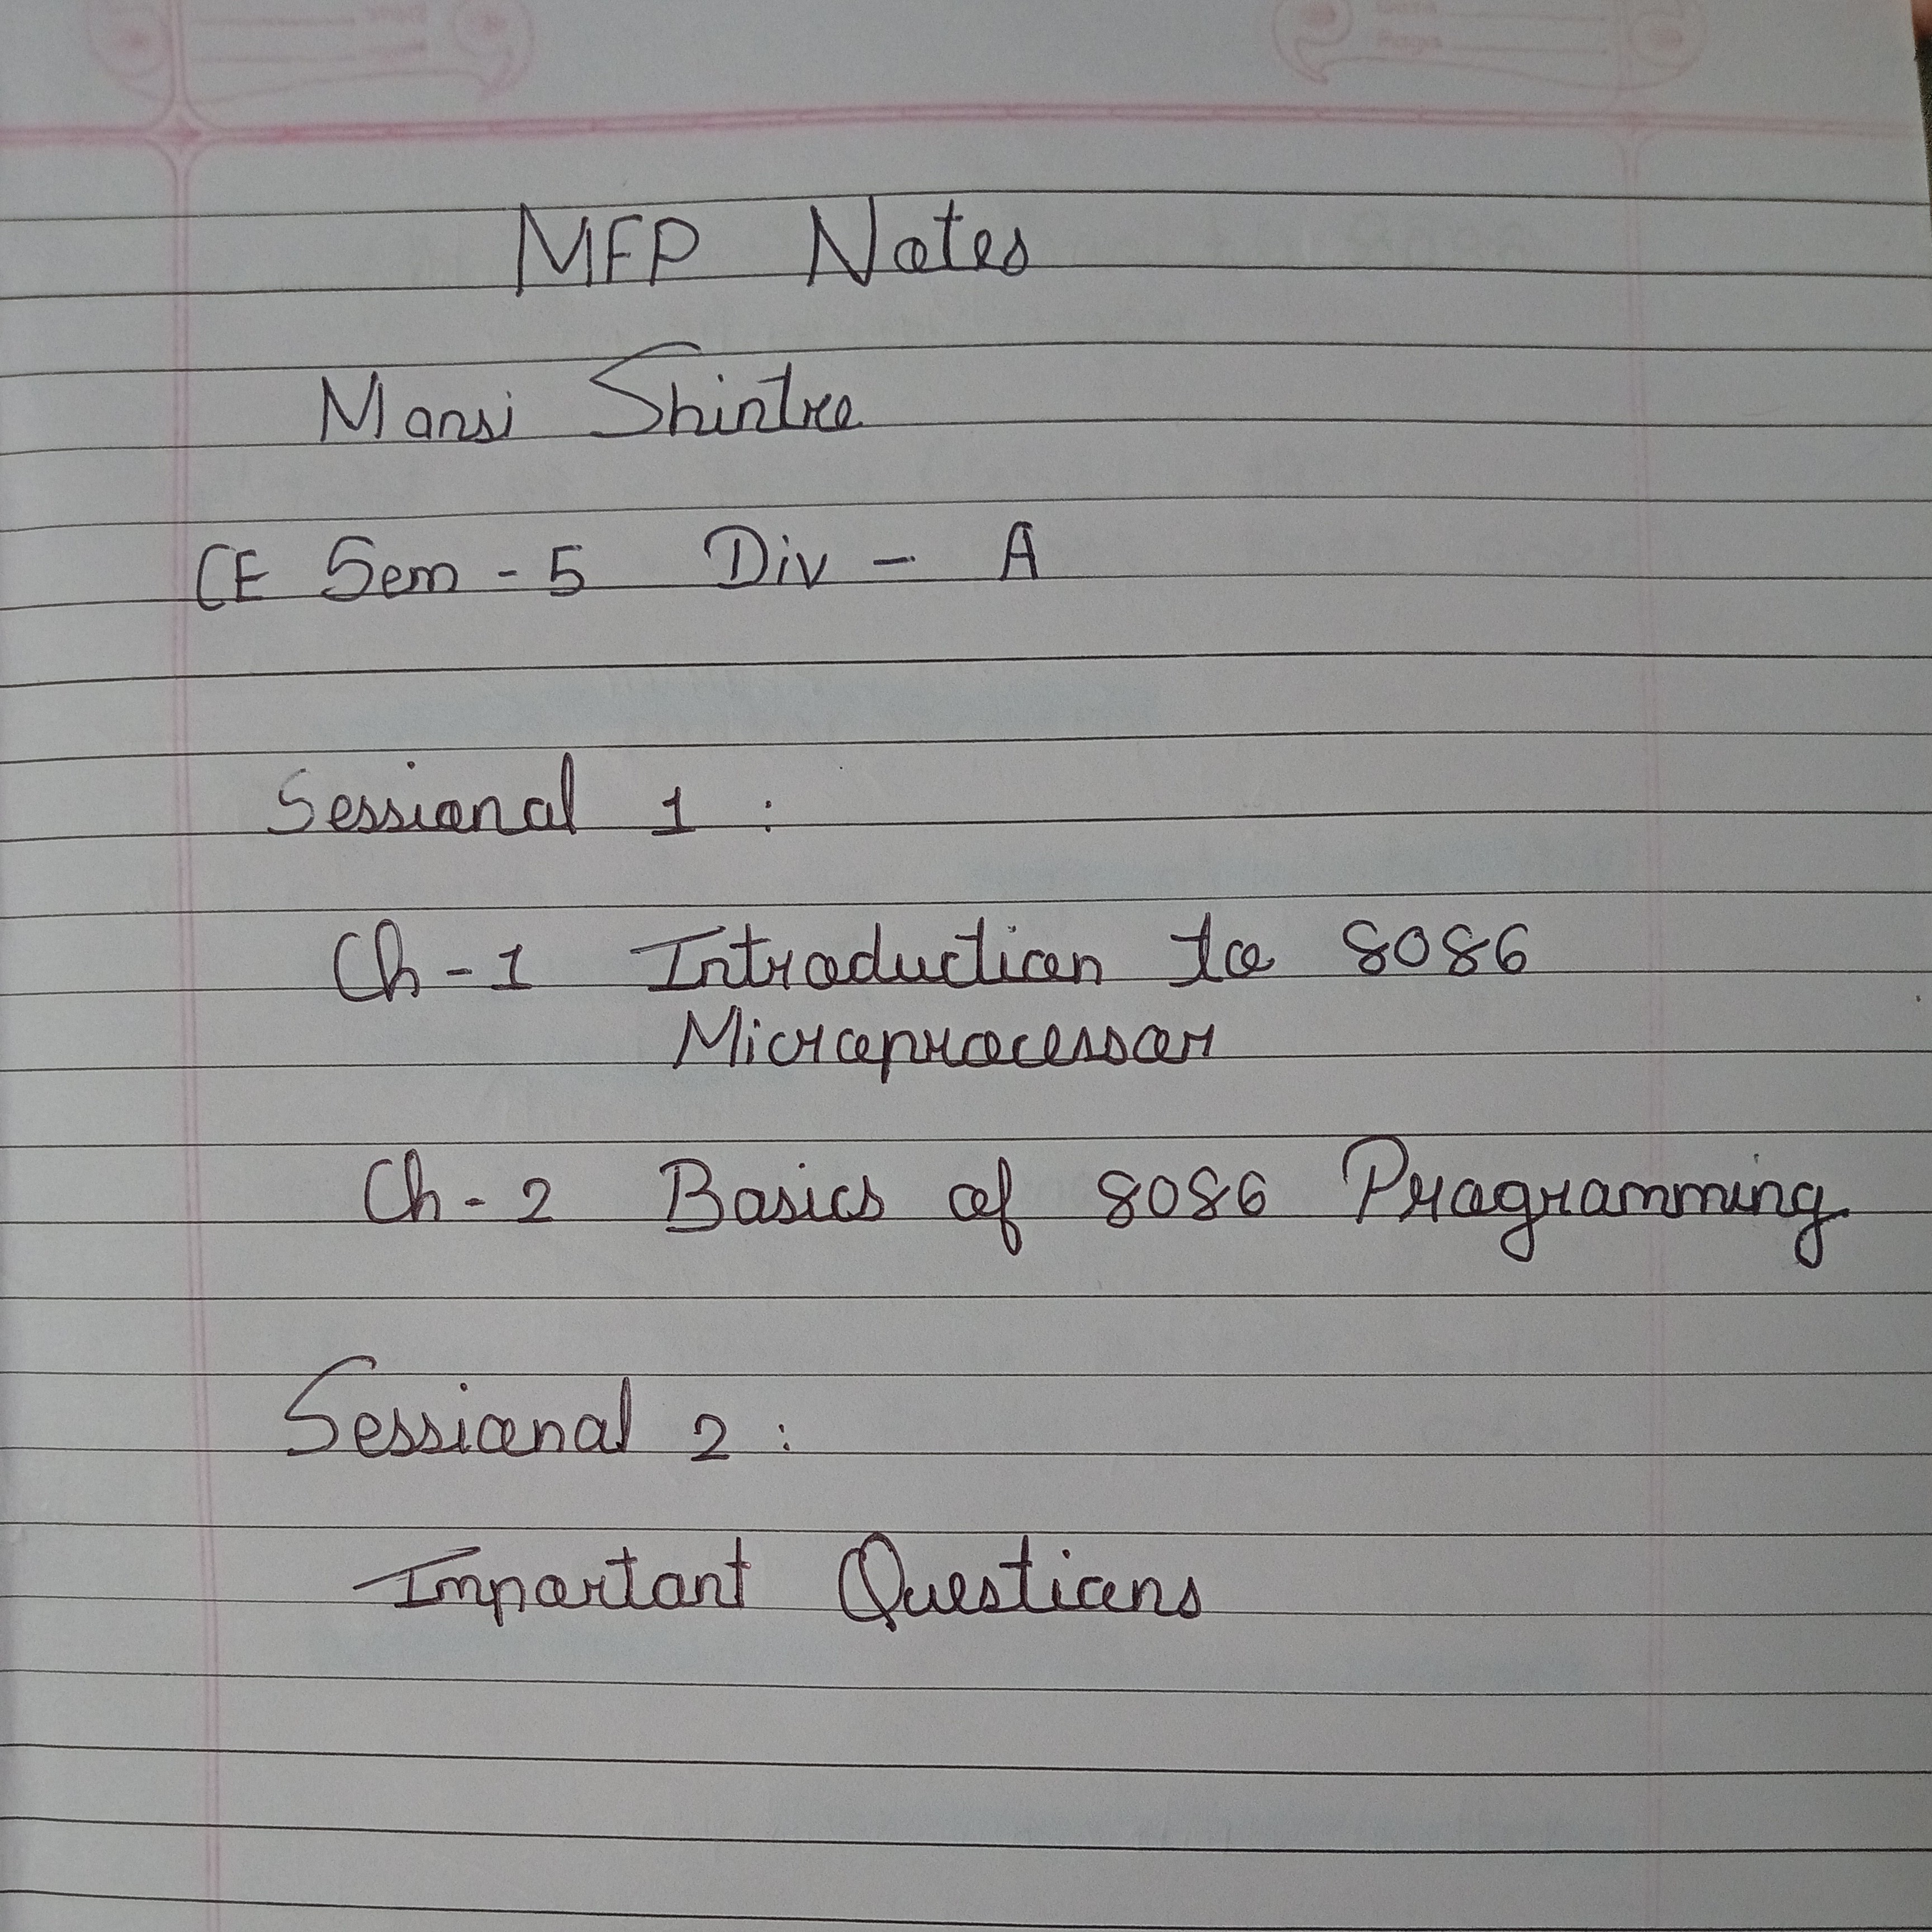 MFP Notes
Mansi Shintre
CE Sem - 5 Div - A
Sessional 1 :
Ch - 1 Introduction to 8086
Microprocessor
Ch - 2 Basics of 8086 Programming
Sessional 2 :
Important Questions